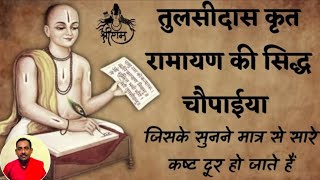 श्रीराम
तुलसीदास कृत
रामायण की सिद्ध
चौपाईया
जिसके सुनने मात्र से सारे
कष्ट दूर हो जाते हैं